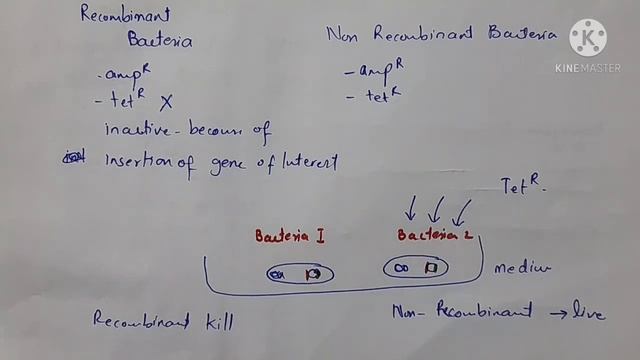 Recombinant
Bacteria
- amp^R
- tet^R X
inactive - becoun of
insertion of gene of Interert
Non Recombinant Bacteria
- amp^R
- tet^R
KINEMASTER
Tet^R.
Bacteria I
Bacteria 2
mediur
Recombinant kill
Non- Recombinant → live